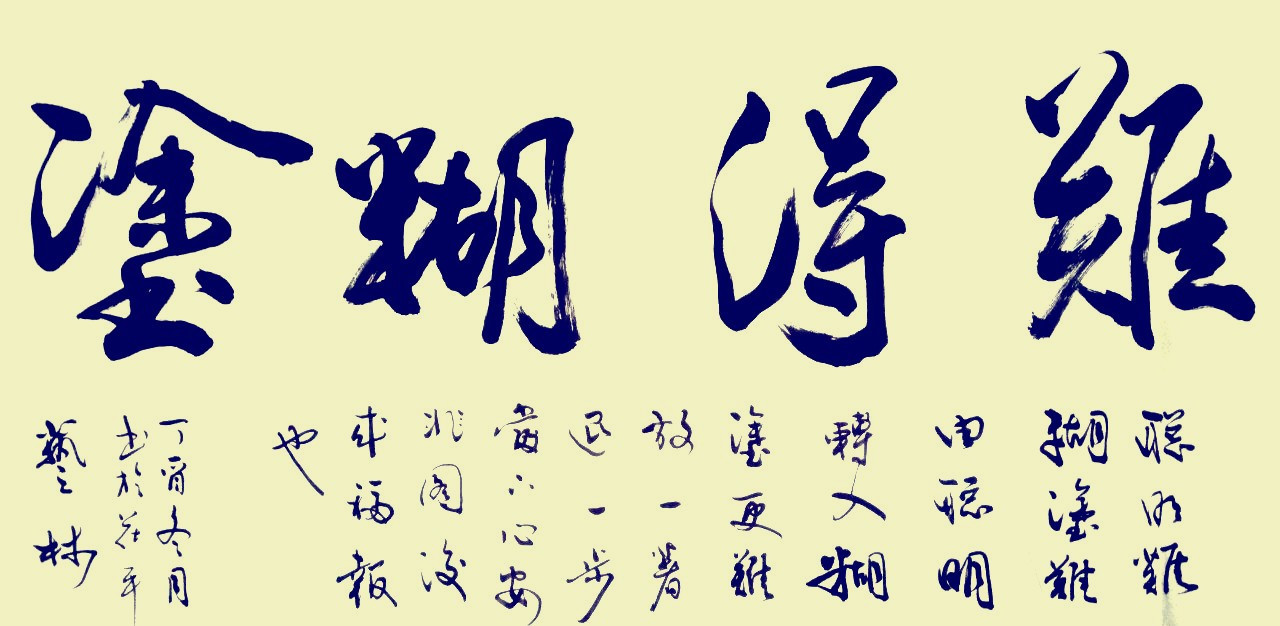 難得糊塗
聰明難
糊塗難
由聰明
轉入糊
塗更難
放一著
退一步
當下心安
非圖後
來福報
也
丁酉冬月
書於花平
藝林